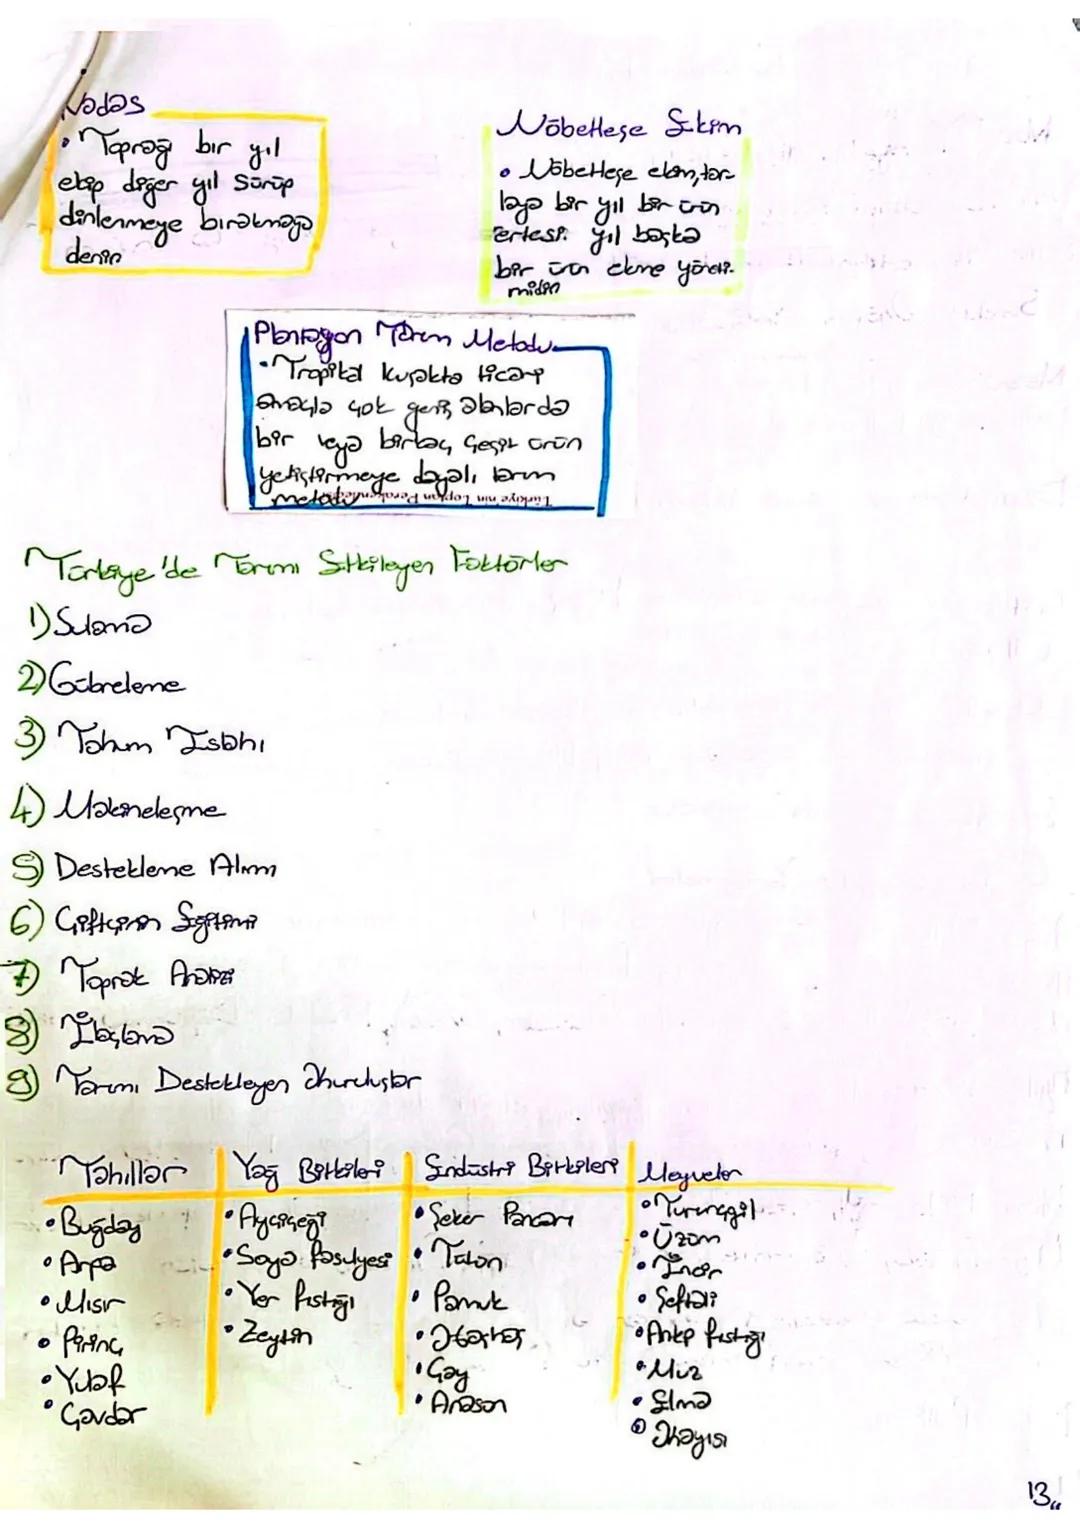 Nadas
• Toprağı bir yıl
ekip diğer yıl sürüp
dinlenmeye bırakmaya
denir
Nöbetleşe Ekim
• Nöbetleşe ekim, tar-
laya bir yıl bir ürün
ertesi yıl başka
bir ürün ekme yönte-
midir
Plantasyon Tarım Metodu
• Tropikal kuşakta ticari
amaçla çok geniş alanlarda
bir veya birkaç çeşit ürün
yetiştirmeye dayalı tarım
metodu
Türkiye'nin Toptan Perakende
Türkiye'de Tarımı Etkileyen Faktörler
1) Sulama
2) Gübreleme
3) Tohum Islahı
4) Makineleşme
5) Destekleme Alımı
6) Çiftçinin Eğitimi
7) Toprak Analizi
8) İlaçlama
9) Tarımı Destekleyen Kuruluşlar
Tahıllar
• Buğday
• Arpa
• Mısır
• Pirinç
• Yulaf
• Çavdar
Yağ Bitkileri
• Ayçiçeği
• Soya fasulyesi
• Yer fıstığı
• Zeytin
Endüstri Bitkileri
• Şeker Pancarı
• Tütün
• Pamuk
• Haşhaş
• Çay
• Anason
Meyveler
• Turunçgil
• Üzüm
• İncir
• Şeftali
• Antep fıstığı
• Muz
• Elma
• Kayısı
13